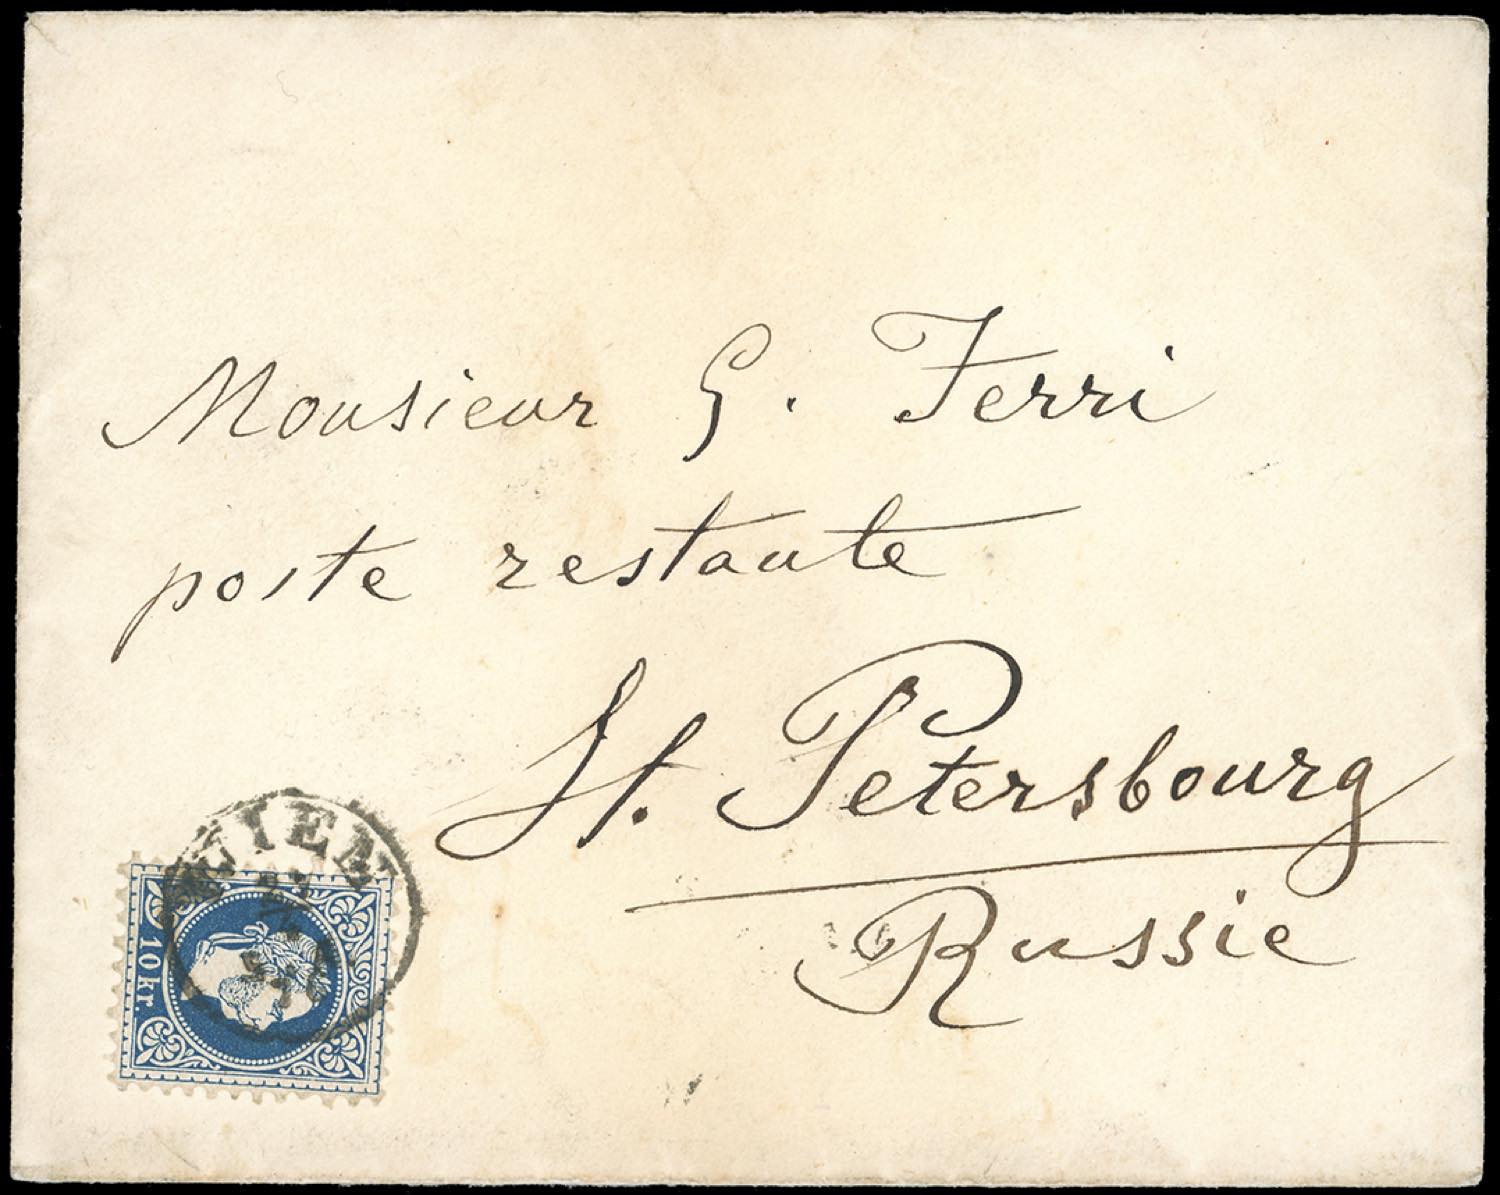 Monsieur G. Ferri
poste restante
St. Petersbourg
Russie
WIEN
10 kr.